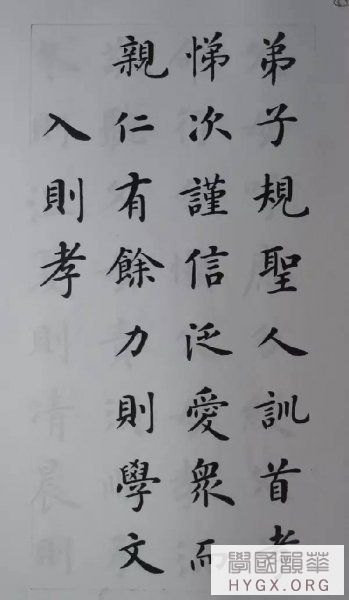 弟子規聖人訓首孝
悌次謹信泛愛衆而
親仁有餘力則學文
入則孝
學國韻華
HYGX.ORG